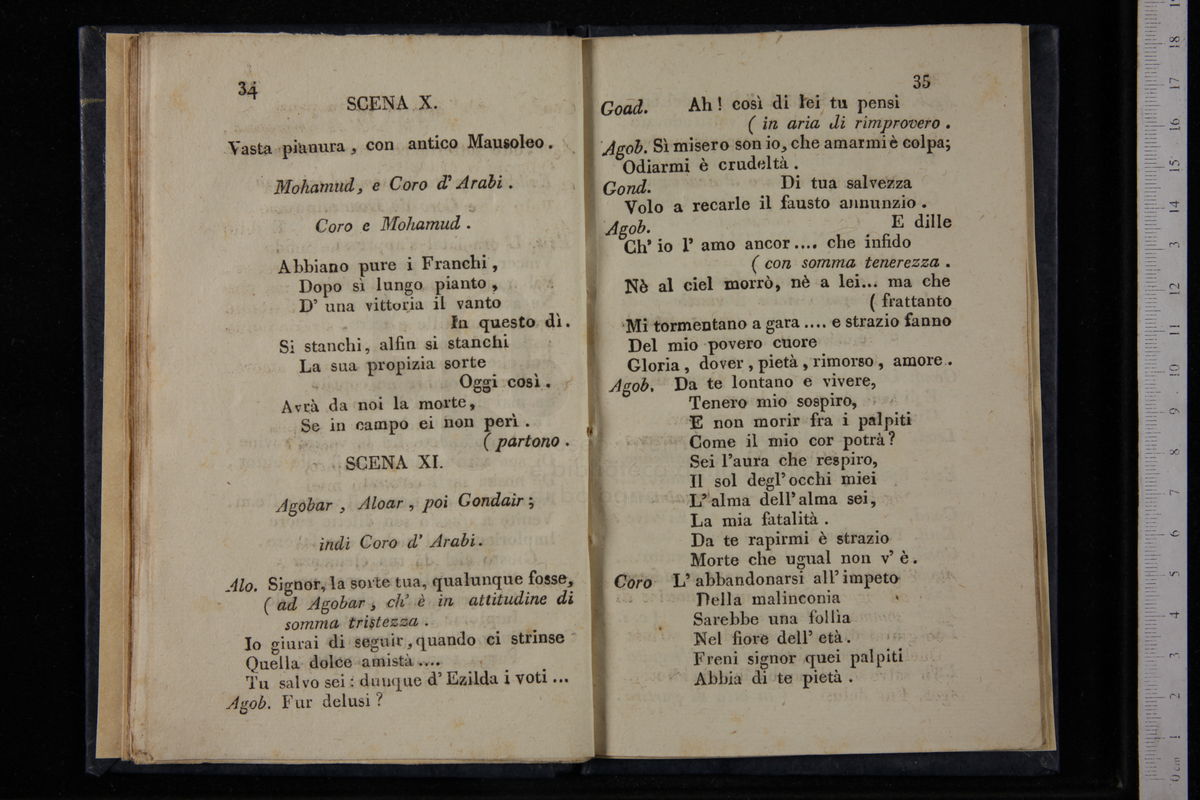 34
SCENA X.
Vasta pianura, con antico Mausoleo.
Mohamud, e Coro d' Arabi.
Coro e Mohamud.
Abbiano pure i Franchi,
Dopo sì lungo pianto,
D' una vittoria il vanto
In questo dì.
Si stanchi, alfin si stanchi
La sua propizia sorte
Oggi così.
Avrà da noi la morte,
Se in campo ei non perì.
( partono.
SCENA XI.
Agobar, Aloar, poi Gondair;
indi Coro d' Arabi.
Alo. Signor, la sorte tua, qualunque fosse,
( ad Agobar, ch' è in attitudine di
somma tristezza.
Io giurai di seguir, quando ci strinse
Quella dolce amistà ....
Tu salvo sei : dunque d' Ezilda i voti ...
Agob. Fur delusi ?
35
Goad. Ah ! così di lei tu pensi
( in aria di rimprovero.
Agob. Sì misero son io, che amarmi è colpa;
Odiarmi è crudeltà.
Gond. Di tua salvezza
Volo a recarle il fausto annunzio.
Agob. E dille
Ch' io l' amo ancor .... che infido
( con somma tenerezza.
Nè al ciel morrò, nè a lei... ma che
( frattanto
Mi tormentano a gara .... e strazio fanno
Del mio povero cuore
Gloria, dover, pietà, rimorso, amore.
Agob. Da te lontano e vivere,
Tenero mio sospiro,
E non morir fra i palpiti
Come il mio cor potrà ?
Sei l'aura che respiro,
Il sol degl' occhi miei
L' alma dell' alma sei,
La mia fatalità.
Da te rapirmi è strazio
Morte che ugual non v' è.
Coro L' abbandonarsi all' impeto
Della malinconia
Sarebbe una follìa
Nel fiore dell' età.
Freni signor quei palpiti
Abbia di te pietà.
0 cm 1 2 3 4 5 6 7 8 9 10 11 12 13 14 15 16 17 18